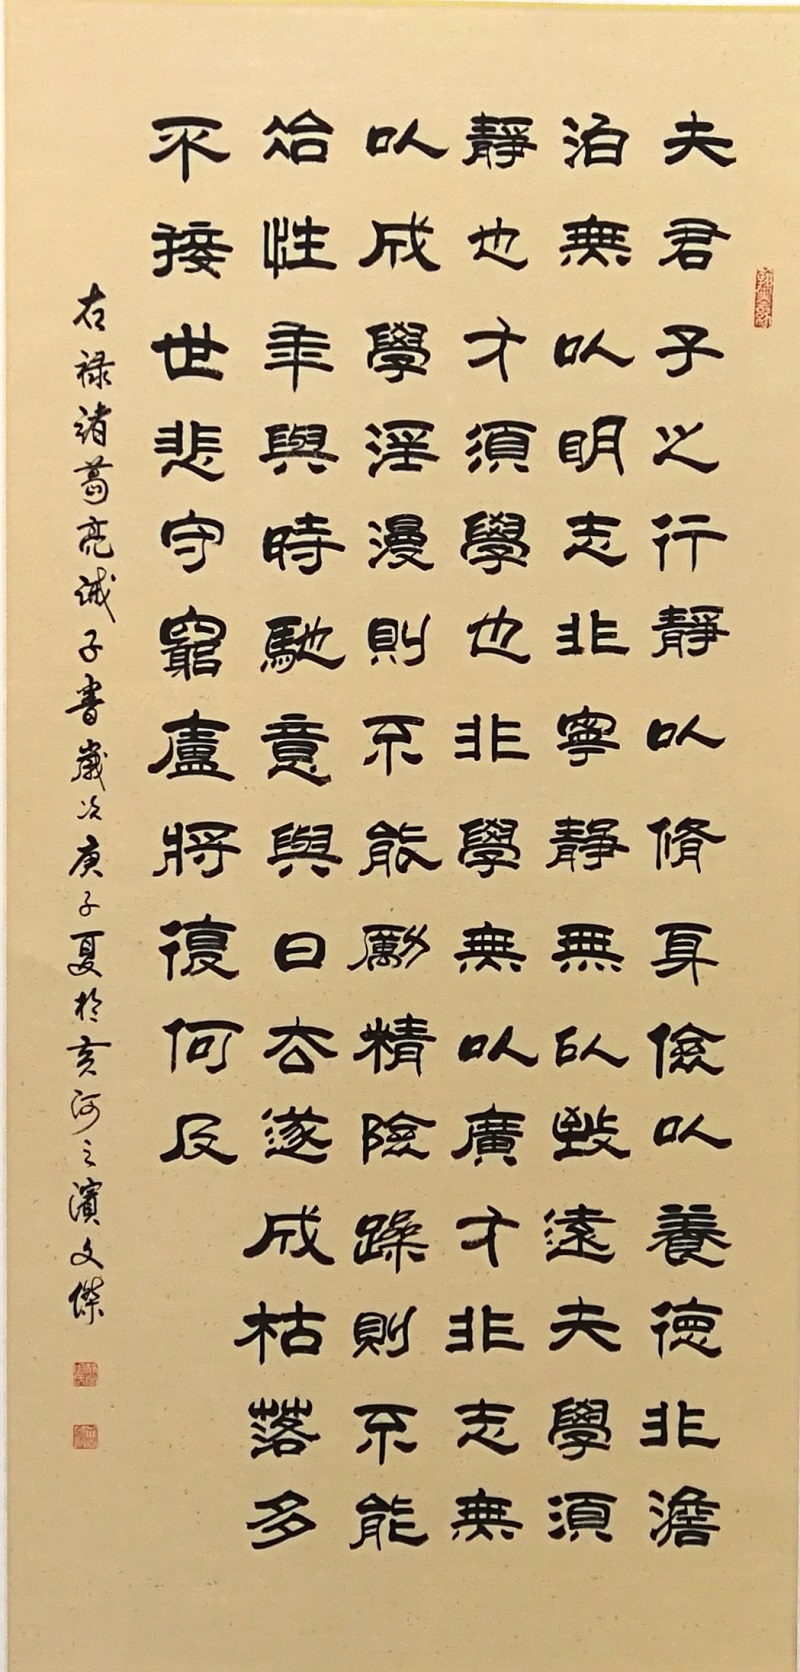 夫君子之行靜以脩身儉以養德非澹
泊無以明志非寧靜無以致遠夫學須
靜也才須學也非學無以廣才非志無
以成學淫漫則不能勵精險躁則不能
冶性年與時馳意與日去遂成枯落多
不接世悲守窮廬將復何及
右祿諸葛亮誡子書歲次庚子夏於黃河之濱文傑